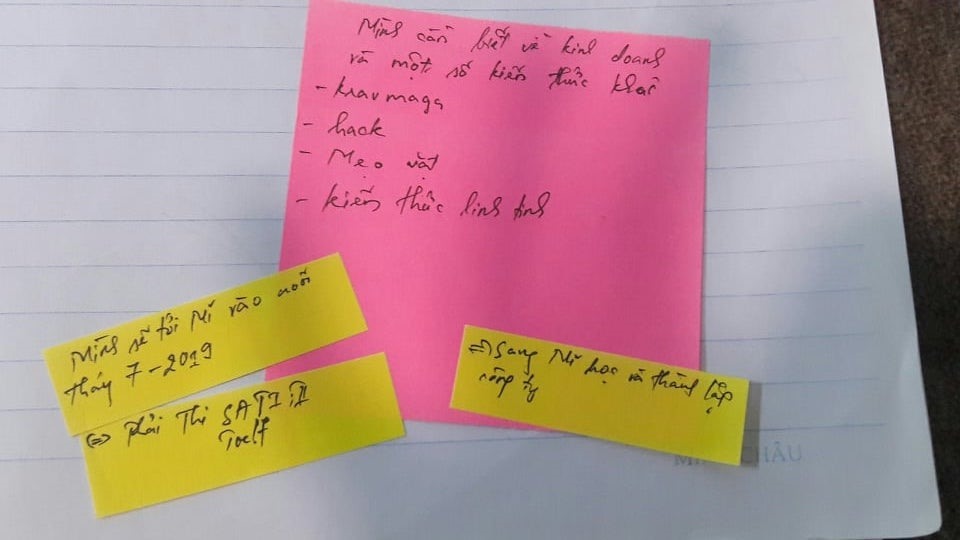 Mình cần biết về kinh doanh
và một số kiến thức khác
- kravmaga
- hack
- Mẹo vặt
- kiến thức linh tinh
Mình sẽ tới Mĩ vào cuối
tháy 7-2019
<=> Phải Thi SAT I, II
Toelf
=> Sang Mĩ học và thành lập
công ty
CHÂU